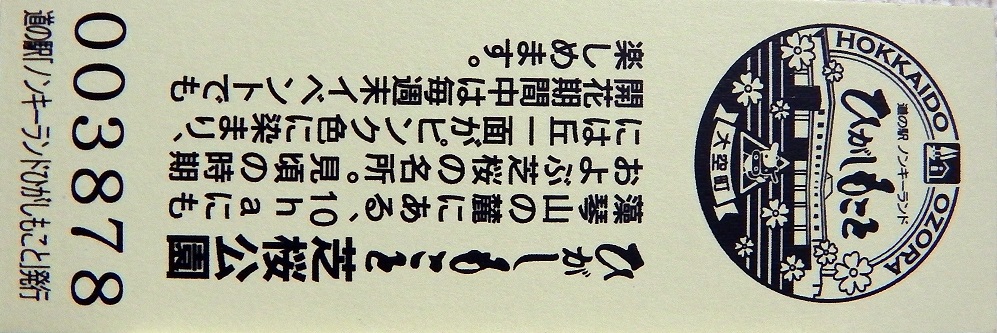 HOKKAIDO
道の駅 ノンキーランド
ひがしもこと
OZORA
大空町
ひがしもこと芝桜公園
藻琴山の麓にある、10haにも
およぶ芝桜の名所。見頃の時期
には丘一面がピンク色に染まり、
開花期間中は毎週末イベントでも
楽しめます。
003878
道の駅「ノンキーランドひがしもこと」発行